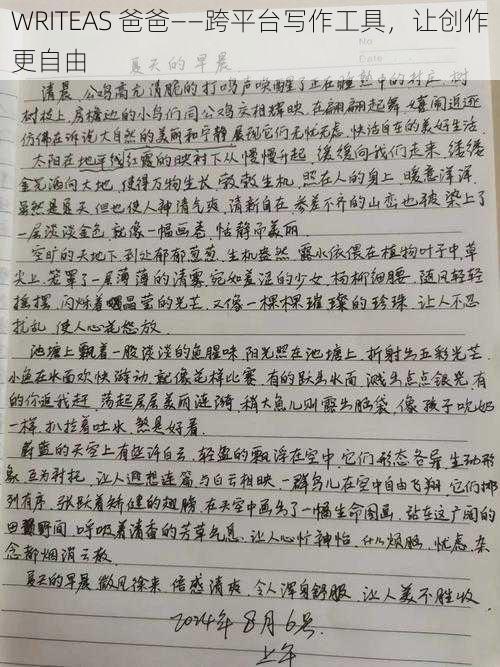 WRITEAS 爸爸——跨平台写作工具，让创作
更自由
No
Date
夏天的早晨
清晨,公鸡高亢清脆的打鸣声唤醒了正在睡熟中的村庄,树
树枝上,房檐边的小鸟们同公鸡交相辉映,在翩翩起舞,嬉闹追逐
仿佛在诉说大自然的美丽和宁静,展现它们无忧无虑,快活自在的美好生活.
太阳在地平线红霞的映衬下从慢慢升起,缓缓向我们走来,缕缕
金光洒向大地,使得万物生长,敦敦生机,照在人的身上,暖意洋洋,
虽然是夏天,但也使人神清气爽,清新自在,参差不齐的山峦也被染上了
一层淡淡金色,就像一幅画卷,恬静而美丽.
空旷的天地下,到处郁郁葱葱,生机盎然,露水依偎在植物叶子中,草
尖上,笼罩了一层薄薄的清雾,宛如羞涩的少女,杨柳细腰,随风轻轻
摇摆,闪烁着晶莹的光芒,又像一棵棵璀璨的珍珠,让人不忍
扰乱,使人心花怒放.
池塘上飘着一股淡淡的鱼腥味,阳光照在池塘上,折射出五彩光芒,
小鱼在水面欢快游动,就像花样比赛,有的跃出水面,溅出点点银光,有
的你追我赶,荡起层层美丽涟漪,稍大鱼儿则露出脑袋,像孩子吃奶
一样,扒拉着吐水,煞是好看.
蔚蓝的天空上有些许白云,轻盈的飘浮在空中,它们形态各异,生动形
象,互为衬托,让人遐想连篇,与白云相映,一群鸟儿在空中自由飞翔,它们排
列有序,张跃着矫健的翅膀,在天空中画出了一幅生命图画,站在这广阔的
田野间,呼吸着清香的芳草气息,让人心忙神怡,什么烦脑,忧虑,杂
念都烟消云散.
夏天的早晨,微风徐来,倍感清爽,令人浑身舒服,让人美不胜收.
2024年8月6号.
上午